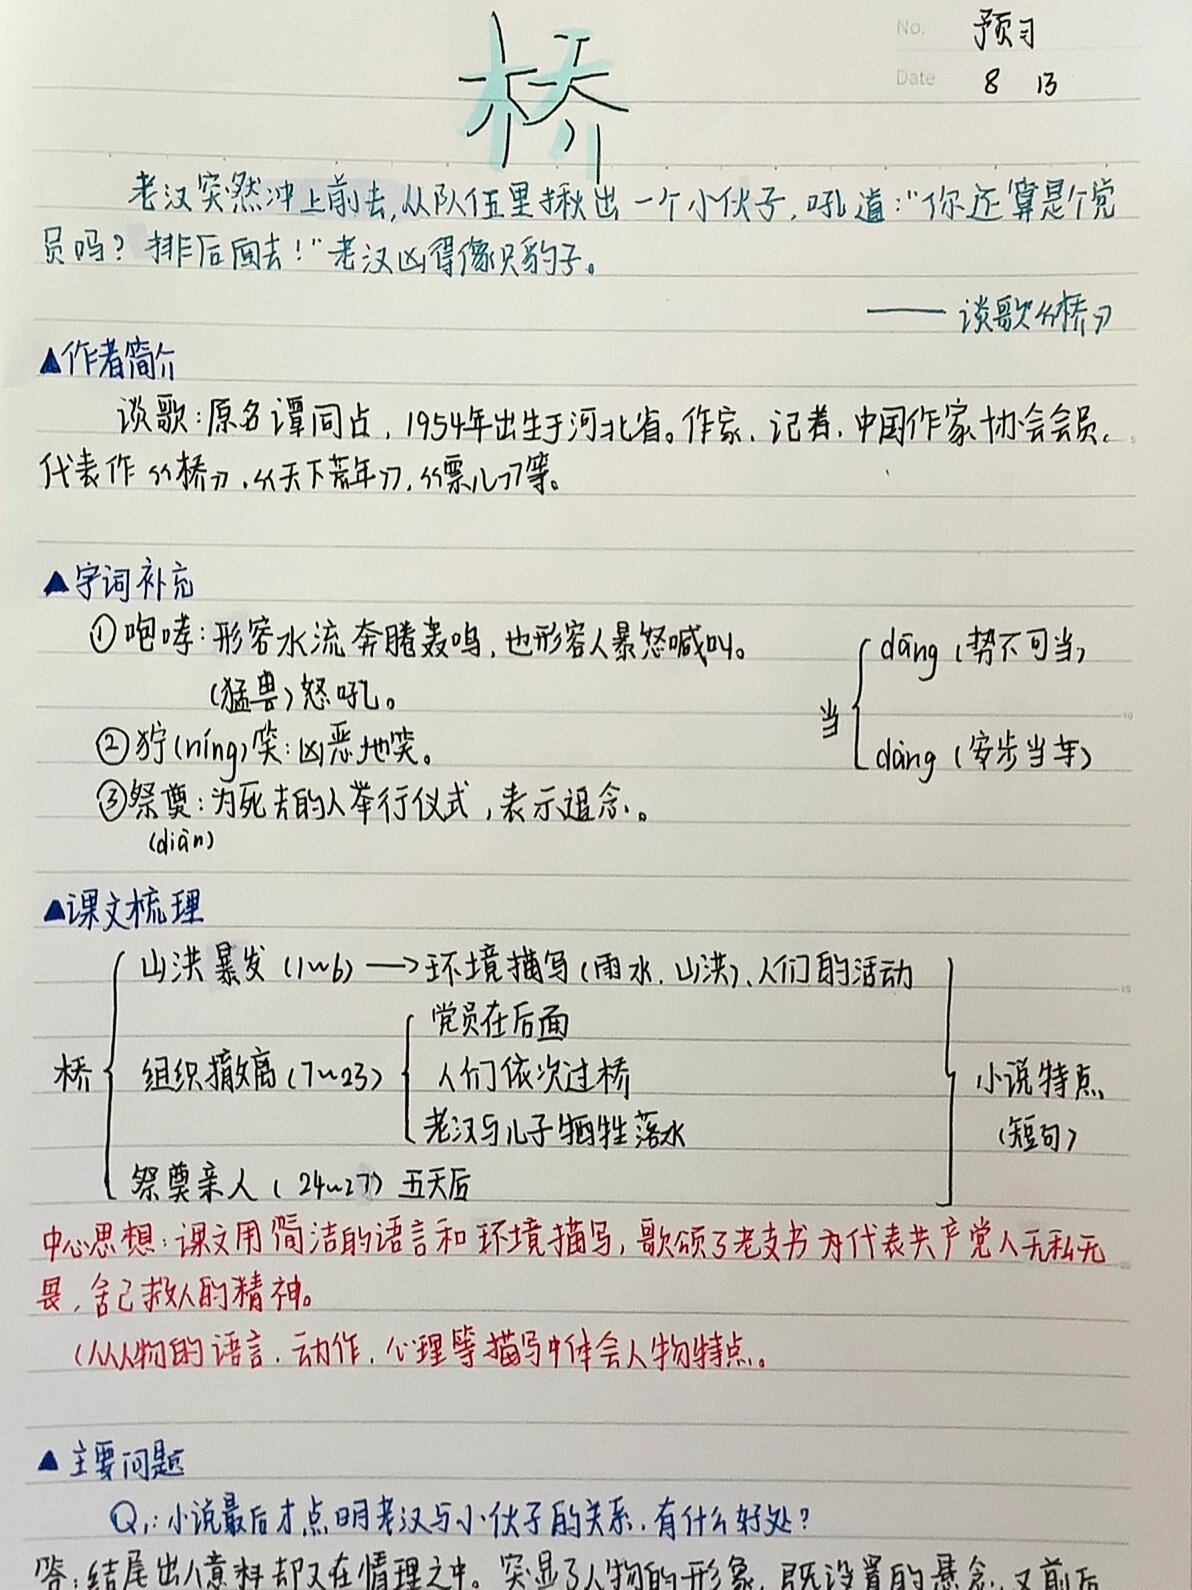 No. 预习
Date 8 13
桥
老汉突然冲上前去,从队伍里揪出一个小伙子,吼道:“你还算是个党
员吗?排后面去!”老汉凶得像只豹子。
——谈歌《桥》
▲作者简介
谈歌:原名谭同占,1954年出生于河北省。作家、记者,中国作家协会会员。
代表作《桥》、《天下荒年》、《票儿》等。
▲字词补充
①咆哮:形容水流奔腾轰鸣,也形容人暴怒喊叫。
(猛兽)怒吼。
②狞(níng)笑:凶恶地笑。
③祭奠:为死去的人举行仪式,表示追念。
(diàn)
当
dāng(势不可当)
dàng(安步当车)
▲课文梳理
山洪暴发(1~6)→环境描写(雨水、山洪)、人们的活动
党员在后面
桥 组织撤离(7~23) 人们依次过桥 小说特点
老汉与儿子牺牲落水 (短句)
祭奠亲人(24~27)五天后
中心思想:课文用简洁的语言和环境描写,歌颂了老支书为代表共产党人无私无
畏,舍己救人的精神。
(从人物的语言、动作、心理等描写中体会人物特点。
▲主要问题
Q1:小说最后才点明老汉与小伙子的关系,有什么好处?
答:结尾出人意料却又在情理之中。突显了人物的形象,既设置的悬念,又前后